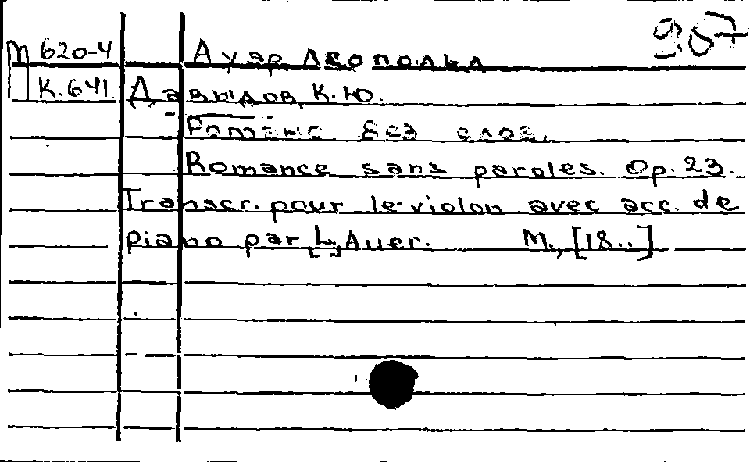 907
М 620-4 Ауэр Леопольд
К.641 Давыдов, К.Ю.
Романс без слов.
Romance sans paroles. Op. 23.
Transcr. pour le violon avec acc. de
piano par [L.] Auer. М., [18..]